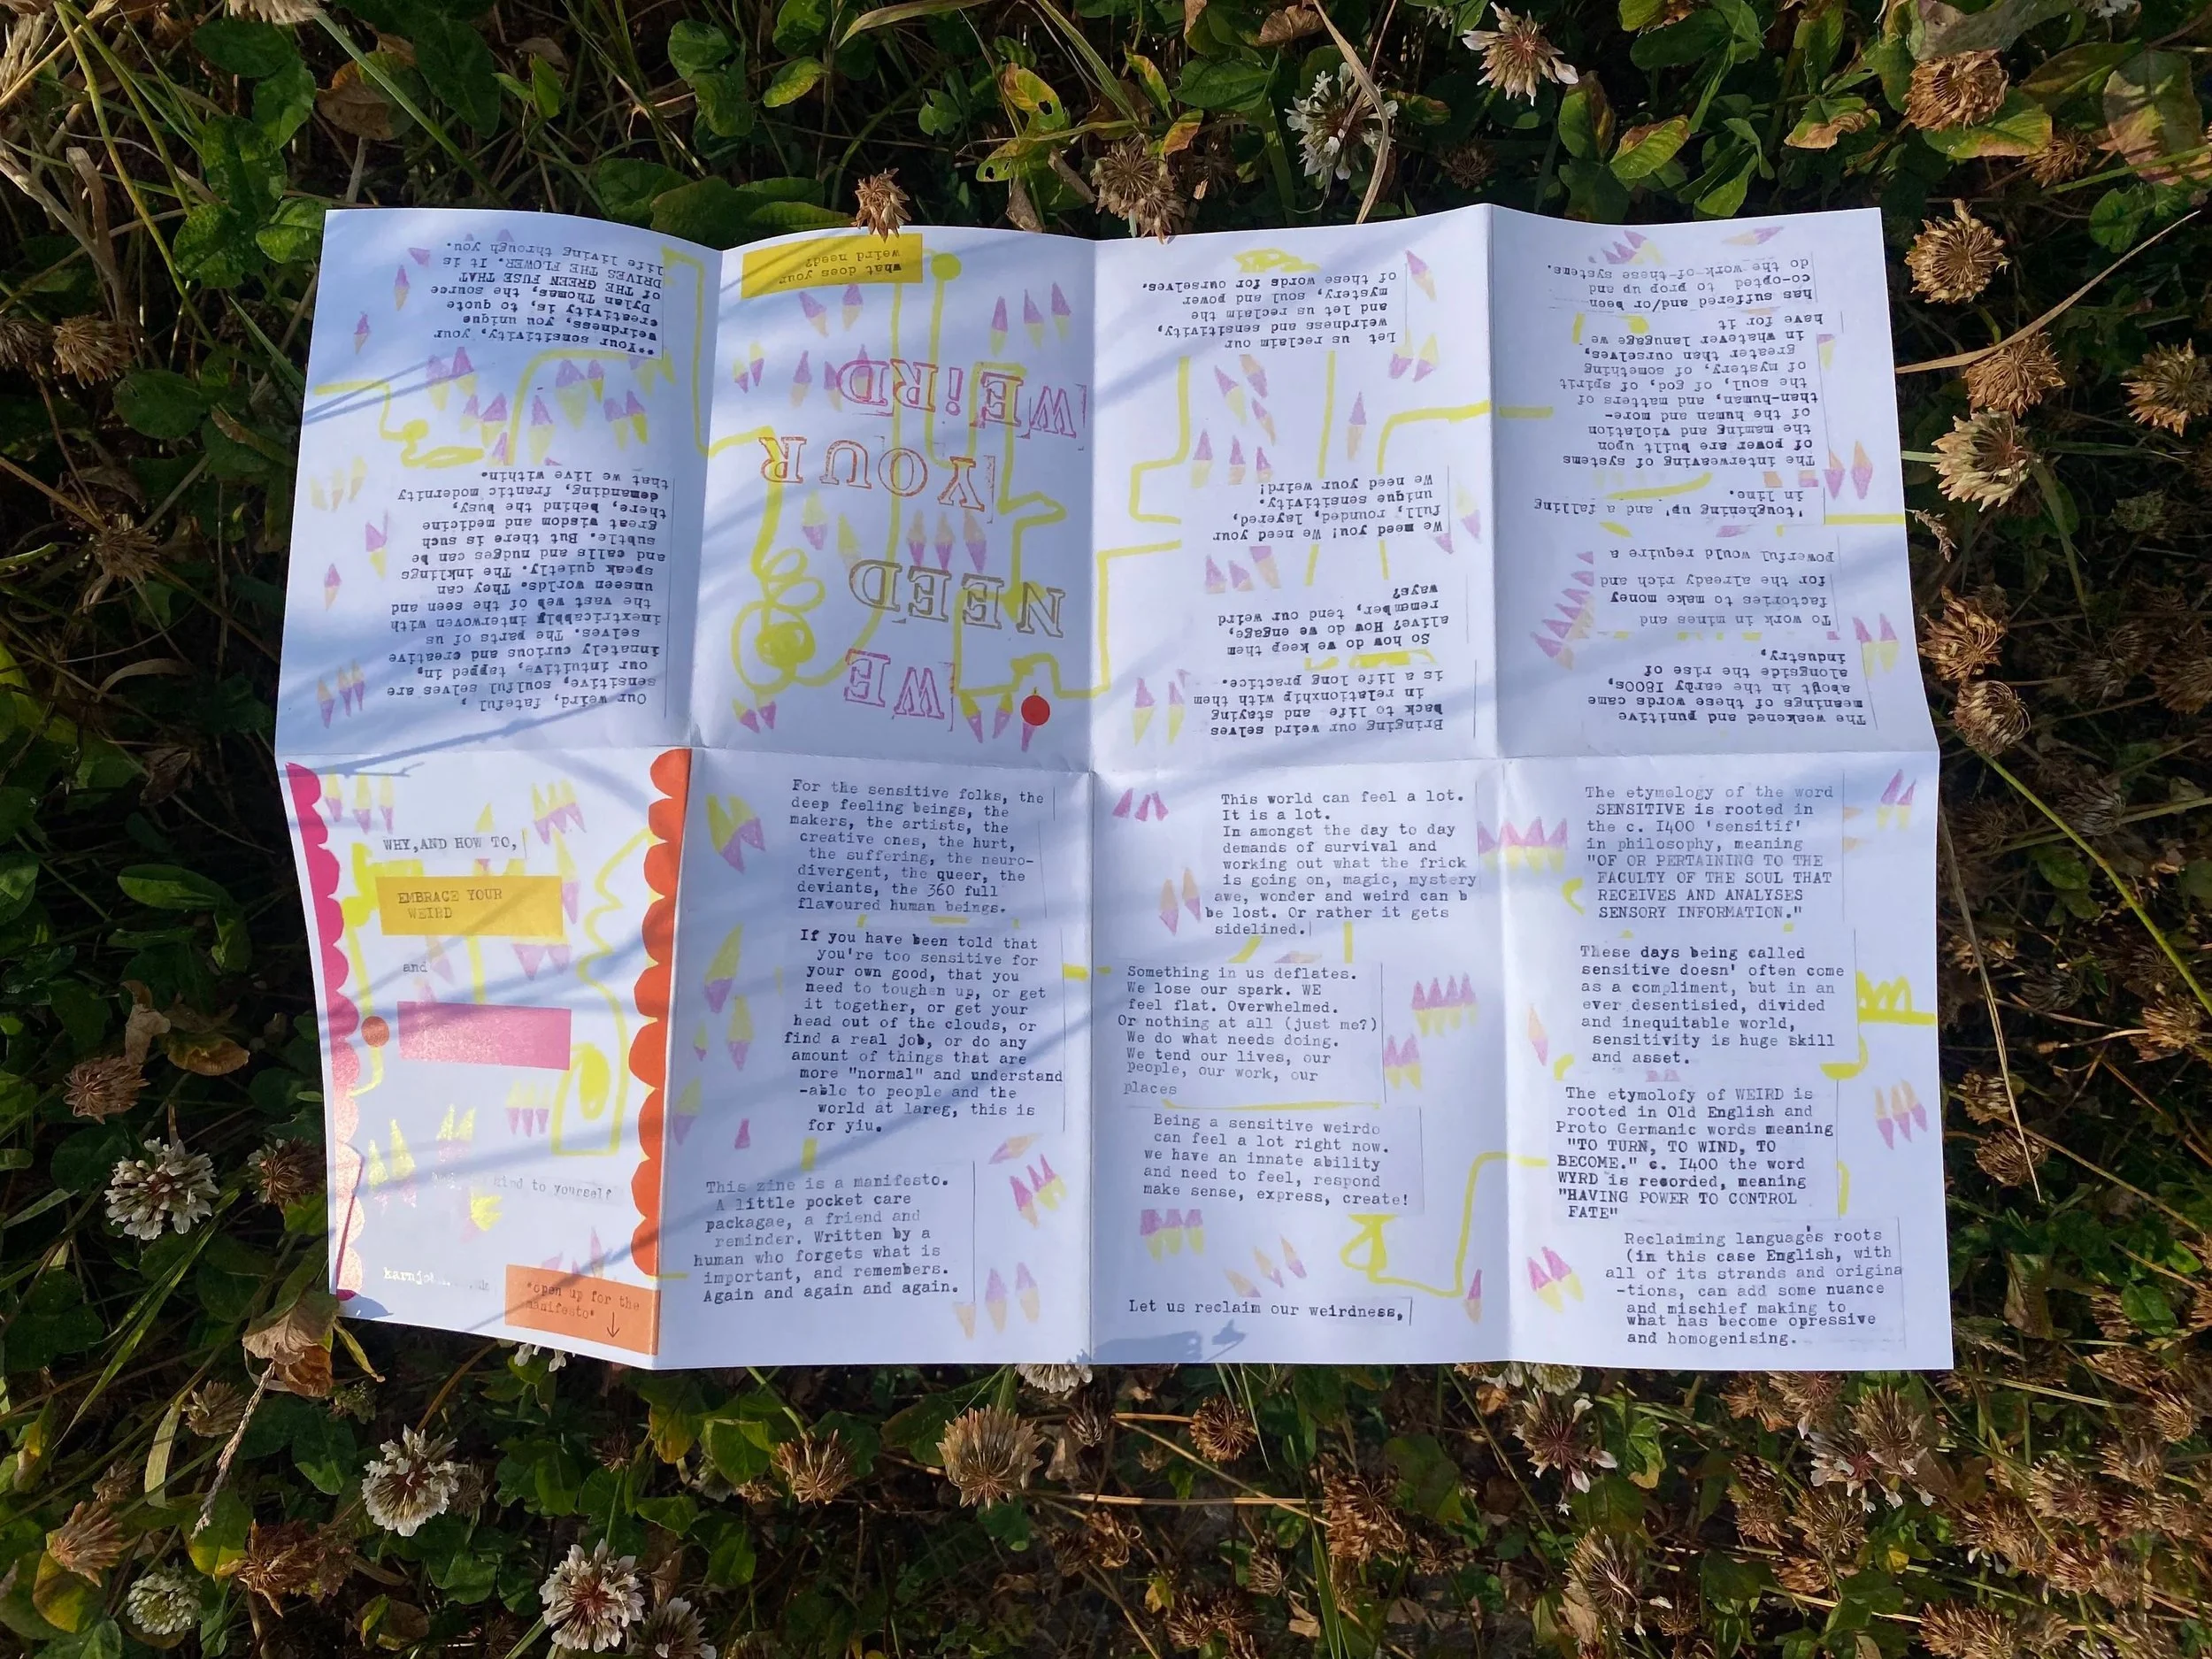 WE
NEED
YOUR
WE!RD
what does your
weird need?
WHY,AND HOW TO,
EMBRACE YOUR
WEIRD
and
kind to yourself
*open up for the
manifesto*
For the sensitive folks, the
deep feeling beings, the
makers, the artists, the
creative ones, the hurt,
the suffering, the neuro-
divergent, the queer, the
deviants, the 360 full
flavoured human beings.
If you have been told that
you're too sensitive for
your own good, that you
need to toughen up, or get
it together, or get your
head out of the clouds, or
find a real job, or do any
amount of things that are
more "normal" and understand
-able to people and the
world at lareg, this is
for yiu.
This zine is a manifesto.
A little pocket care
packagae, a friend and
reminder. Written by a
human who forgets what is
important, and remembers.
Again and again and again.
This world can feel a lot.
It is a lot.
In amongst the day to day
demands of survival and
working out what the frick
is going on, magic, mystery
awe, wonder and weird can b
be lost. Or rather it gets
sidelined.
Something in us deflates.
We lose our spark. WE
feel flat. Overwhelmed.
Or nothing at all (just me?)
We do what needs doing.
We tend our lives, our
people, our work, our
places
Being a sensitive weirdo
can feel a lot right now.
we have an innate ability
and need to feel, respond
make sense, express, create!
Let us reclaim our weirdness,
The etymology of the word
SENSITIVE is rooted in
the c. I400 'sensitif'
in philosophy, meaning
"OF OR PERTAINING TO THE
FACULTY OF THE SOUL THAT
RECEIVES AND ANALYSES
SENSORY INFORMATION."
These days being called
sensitive doesn' often come
as a compliment, but in an
ever desentisied, divided
and inequitable world,
sensitivity is huge skill
and asset.
The etymolofy of WEIRD is
rooted in Old English and
Proto Germanic words meaning
"TO TURN, TO WIND, TO
BECOME." c. I400 the word
WYRD is recorded, meaning
"HAVING POWER TO CONTROL
FATE"
Reclaiming language's roots
(in this case English, with
all of its strands and origina
-tions, can add some nuance
and mischief making to
what has become opressive
and homogenising.
The weakened and punitive
meanings of these words came
about in the early I800s,
alongside the rise of
industry,
To work in mines and
factories to make money
for the already rich and
powerful would require a
'toughening' up' and a falling
in line.
The interweaving of systems
of power are built upon
the maming and violation
of the human and more-
than-human, and matters of
the soul, of god, of spirit
of mystery, of something
greater than ourselves,
in whatever lanugage we
have for it
has suffered and/or been
co-opted to prop up and
do the work of these systems.
Bringing our weird selves
back to life and staying
in relationship with them
is a life long practice.
So how do we keep them
alive? How do we engage,
remember, tend our weird
ways?
We need you! We need your
full, rounded, layered,
unique sensitivity.
We need your weird!
Let us reclaim our
weirdness and sensitivity,
and let us reclaim the
mystery, soul and power
of these words for ourselves.
Our weird, fateful ,
sensitive, soulful selves are
our intuitive, tapped in,
innately curious and creative
selves. The parts of us
inextricably interwoven with
the vast web of the seen and
unseen worlds. They can
speak quietly. The inklings
and calls and nudges can be
subtle. But there is such
great wisdom and medicine
there, behind the busy,
demanding, frantic modernity
that we live within.
**Your sensitivity, your
weirdness, you unique
creativity is, to quote
Dylan Thomas, the source
of THE GREEN FUSE THAT
DRIVES THE FLOWER. It is
life living through you.